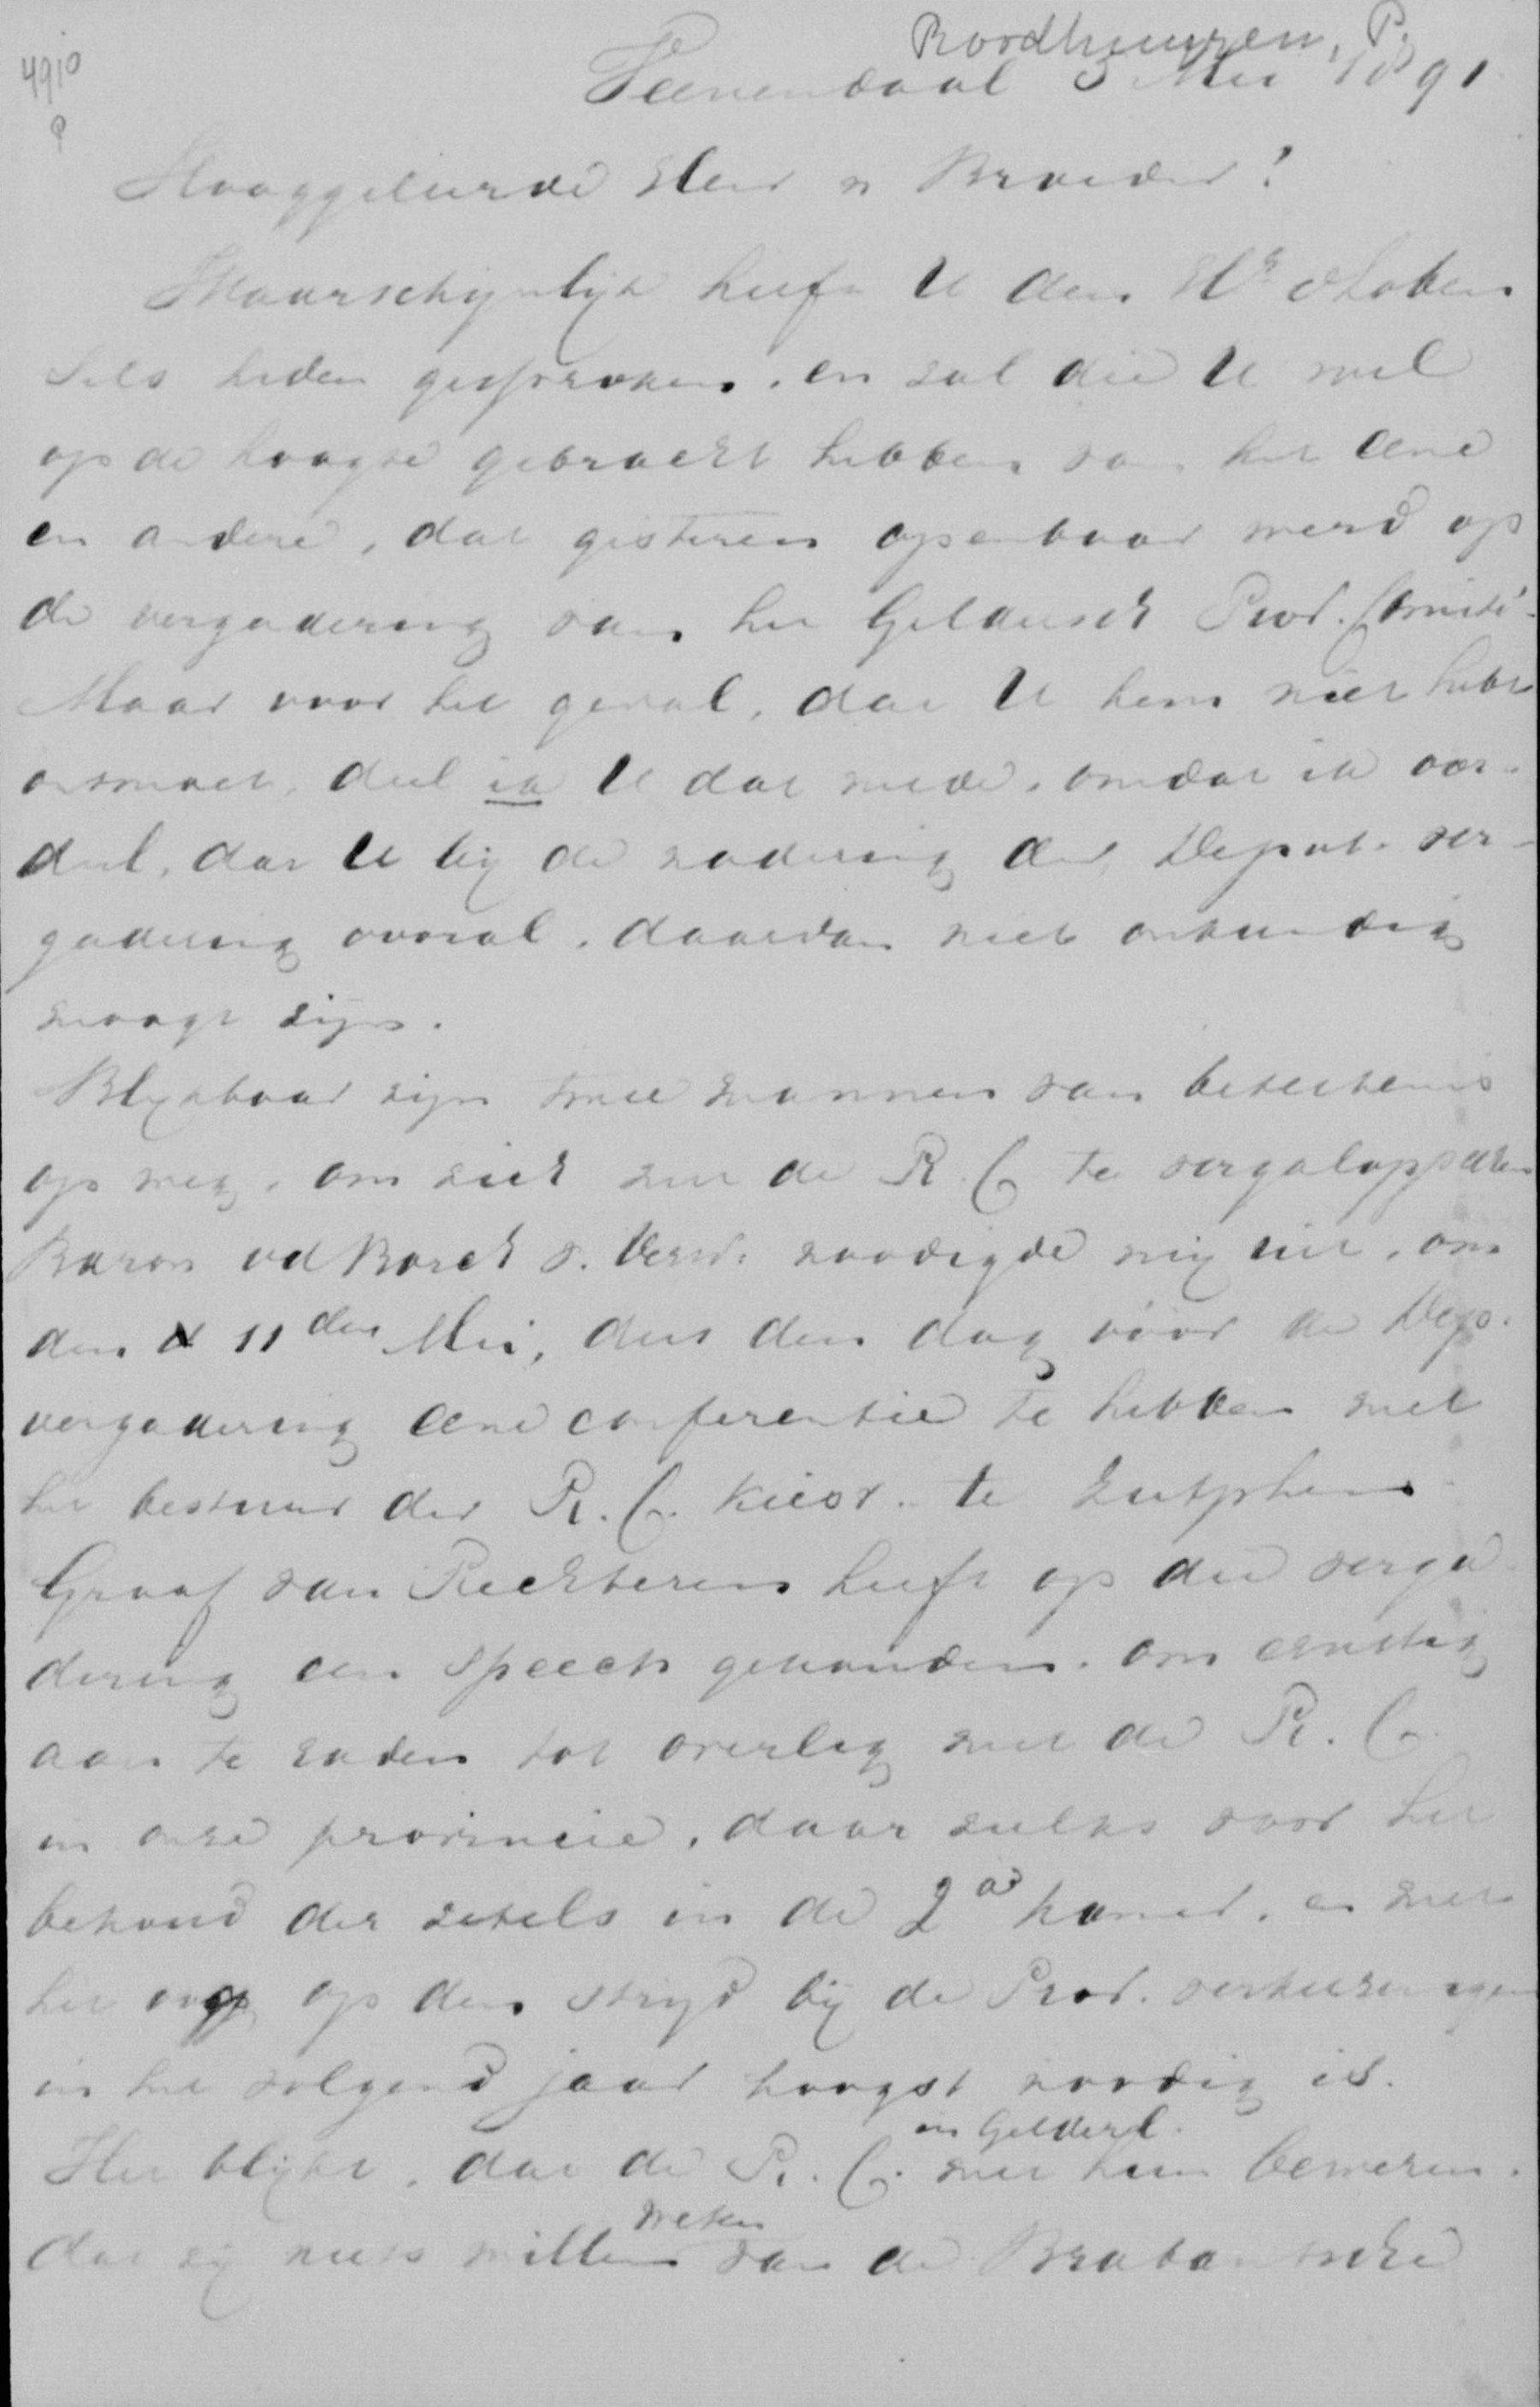 Roodhuyzen, P.
4910
Veenendaal 5 Mei 1891
Hooggeleerde Heer en Broeder!
Waarschijnlijk heeft U den Hr v Loben
Sels heden gesproken, en zal die U wel
op de hoogte gebracht hebben van het eene
en andere, dat gisteren openbaar werd op
de vergadering van het Geldersch Prov. Comité.
Maar voor het geval, dat U hem niet hebt
ontmoet, deel ik U dat mede, omdat ik oor-
deel, dat U bij de nadering der Deput. ver-
gadering vooral, daarvan niet onkundig
moogt zijn.
Blijkbaar zijn twee mannen van beteekenis
op weg, om zich met de R. C te vergaloppeeren
Baron vd Borch v. Verw. noodigde mij uit, om
den 11den Mei, dus den dag vóór de Dep.
vergadering eene conferentie te hebben met
het bestuur der R. C. Kiesv. te Zutphen.
Graaf van Rechteren heeft op die verga
dering een speech gehouden, om ernstig
aan te raden tot overleg met de R. C.
in onze provincie, daar zulks voor het
behoud der zetels in de 2de kamer, en met
het oog op den strijd bij de Prov. verkiezingen
in het volgend jaar hoogst noodig is.
in Gelderl.
Het blijkt, dat de R. C. met hem beweren,
weten
dat zij niets willen van de Brabantsche